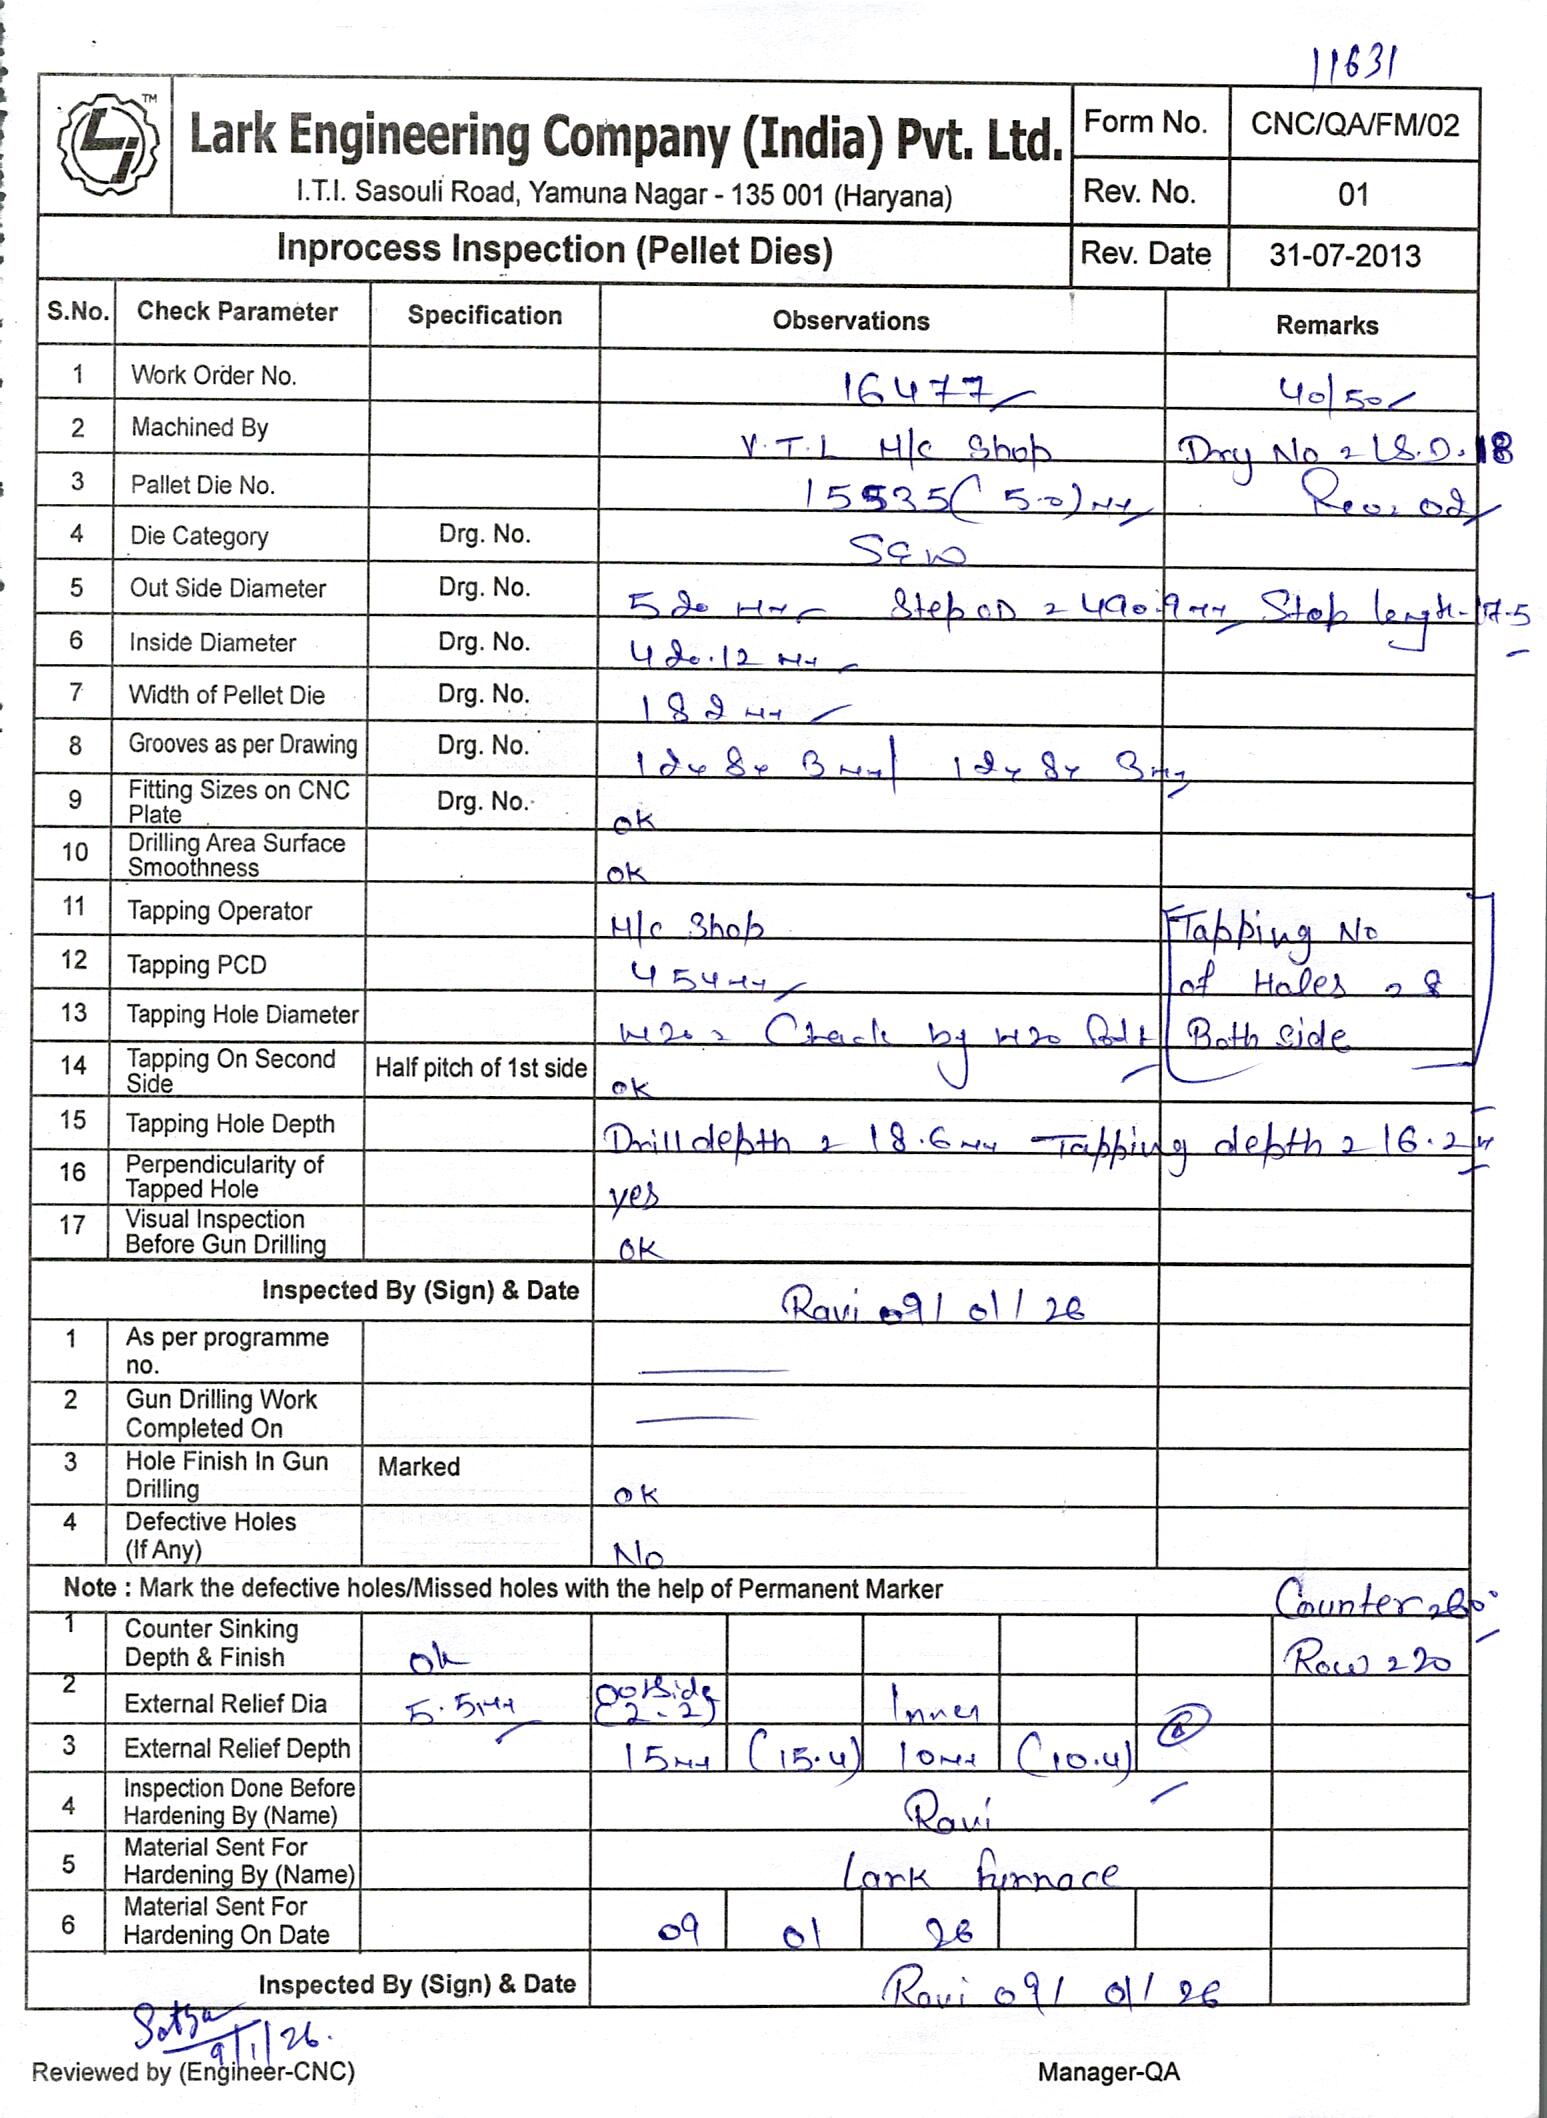 11631
TM
Lark Engineering Company (India) Pvt. Ltd.
I.T.I. Sasouli Road, Yamuna Nagar - 135 001 (Haryana)
Form No. CNC/QA/FM/02
Rev. No. 01
Inprocess Inspection (Pellet Dies) Rev. Date 31-07-2013
S.No. Check Parameter Specification Observations Remarks
1 Work Order No. 16477 40/50
2 Machined By V.T.L M/c Shop Drg No = L.S.D. 18
3 Pallet Die No. 15535 (5.0) mm Rev. 02
4 Die Category Drg. No. SEW
5 Out Side Diameter Drg. No. 520 mm Step OD = 490.9 mm Step length - 17.5
6 Inside Diameter Drg. No. 420.12 mm
7 Width of Pellet Die Drg. No. 182 mm
8 Grooves as per Drawing Drg. No. 12x8x3 mm / 12x8x3 mm
9 Fitting Sizes on CNC Plate Drg. No. ok
10 Drilling Area Surface Smoothness ok
11 Tapping Operator M/c Shop Tapping No
12 Tapping PCD 454 mm of Holes = 8
13 Tapping Hole Diameter M20 = Check by M20 Bolt Both side
14 Tapping On Second Side Half pitch of 1st side ok
15 Tapping Hole Depth Drill depth = 18.6 mm Tapping depth = 16.2 mm
16 Perpendicularity of Tapped Hole yes
17 Visual Inspection Before Gun Drilling ok
Inspected By (Sign) & Date Ravi 09/01/26
1 As per programme no.
2 Gun Drilling Work Completed On
3 Hole Finish In Gun Drilling Marked ok
4 Defective Holes (If Any) No
Note : Mark the defective holes/Missed holes with the help of Permanent Marker Counter = 60°
1 Counter Sinking Depth & Finish ok Row = 20
2 External Relief Dia 5.5 mm Outside (2-2) Inner
3 External Relief Depth 15 mm (15.4) 10 mm (10.4)
4 Inspection Done Before Hardening By (Name) Ravi
5 Material Sent For Hardening By (Name) Lark furnace
6 Material Sent For Hardening On Date 09 01 26
Inspected By (Sign) & Date Ravi 09/01/26
9/1/26.
Reviewed by (Engineer-CNC) Manager-QA